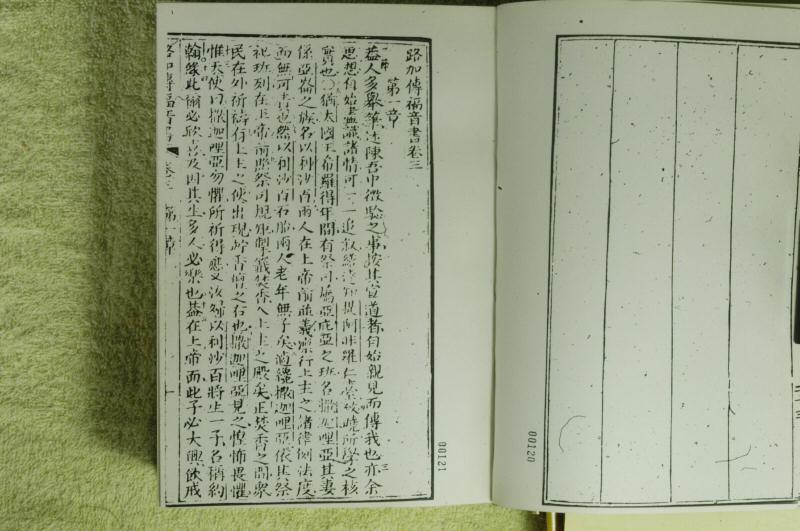 路加傳福音書卷三
第一章
蓋人多舉筆述陳吾中徵驗之事按其宣道者自始親見而傳我也亦余
思想自始盡識諸情可一一追敘繕達知提阿非羅仁崇致曉所學之核
實也猶太國王希羅得年間有祭司屬亞庇亞之班名撒迦哩亞其妻
係亞崙之族名以利沙百兩人在上帝前並義率行上主之諸律例法度
而無可責也然以利沙百石胎兩人老年無子矣適纔撒迦哩亞依其祭
祀班列在上帝前照祭司規矩掣籤焚香入上主之殿矣正焚香之間眾
民在外祈禱有上主之使出現於香壇之右也撒迦哩亞見之惶怖畏懼
惟天使曰撒迦哩亞勿懼所祈得應又汝婦以利沙百將生一子名稱約
翰緣此爾必欣喜及因其生多人必樂也蓋在上帝面此子必大興飲戒
路加傳福音書 卷三 第一章
00121
00120